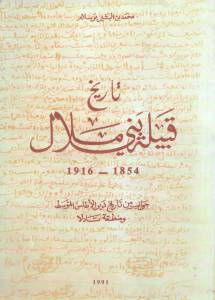 محمد بن البشير بوسلام
تاريخ
قبيلة بني ملال
1854 — 1916
جوانب من تاريخ دير الأطلس المتوسط
ومنطقة تادلا
1991